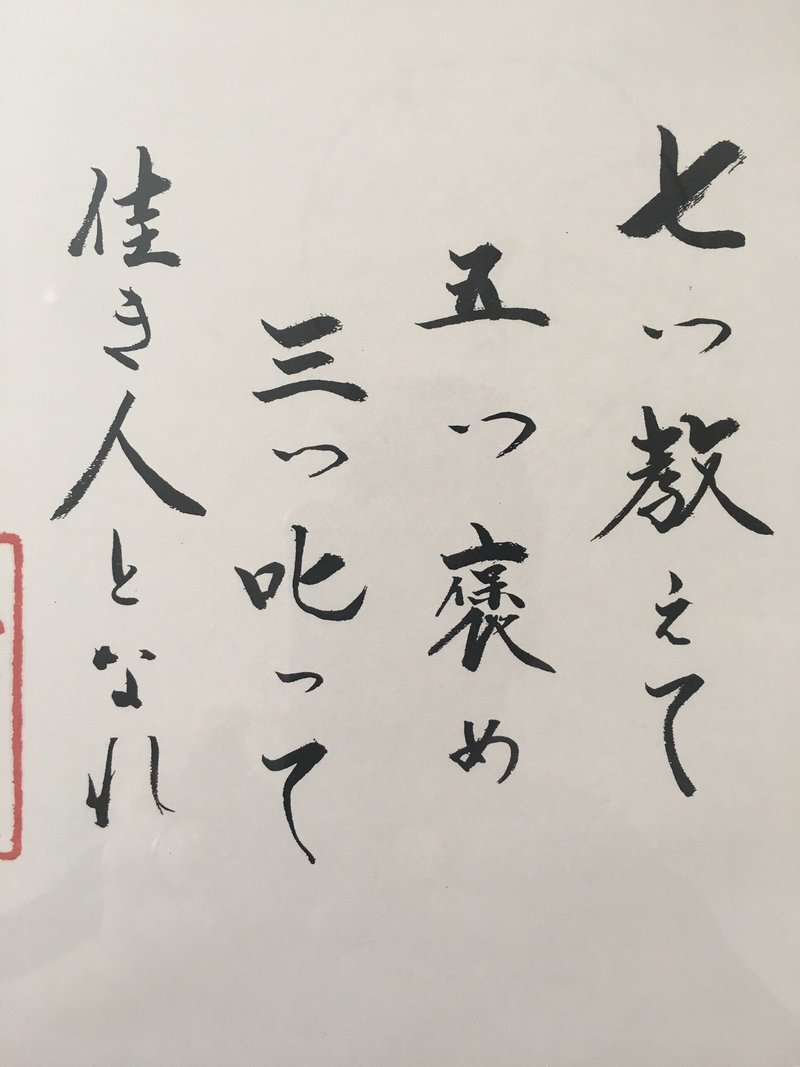 七つ教えて
五つ褒め
三つ叱って
佳き人となれ